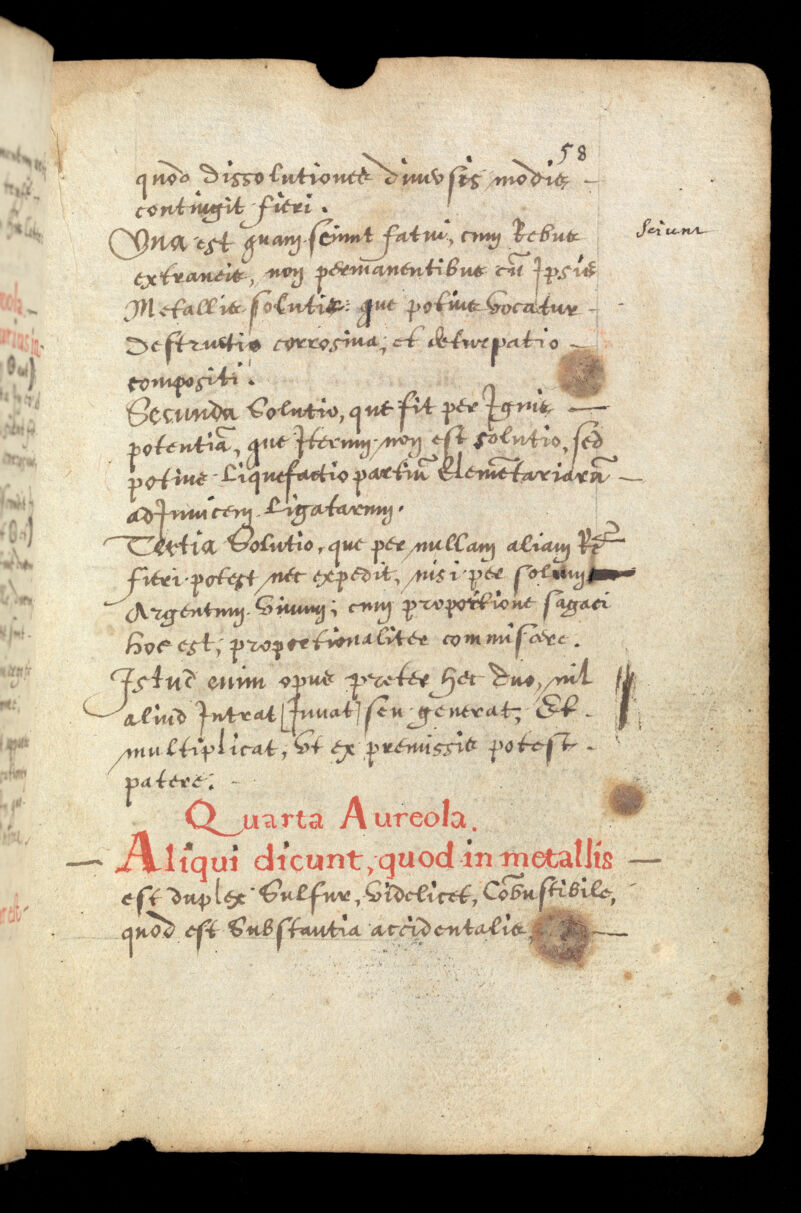 58
quod dissolutiones diuersis modis
contingit fieri.
Vna est quam sciunt fatui, cum Rebus
sciunt
extraneis, non permanentibus cū Ipsis
Metallis solutis: que potius vocatur
destructio corrosiua, et deturpatio
compositi.
Secunda Solutio, que fit per Ignis
potentiā, que Iterum non est solutio, sed
potius Liquefactio partiū Elemētariarū
ad Inuicem Ligatarum.
Tertia Solutio, que per nullam aliam Rē
fieri potest nec expedit, nisi per solum
Argentum viuum; cum proportione sagaci
hoc est, proportionaliter commiscere.
Istud enim opus preter hec duo, nil
aliud Intrat [Iuuat] seu generat, Et
multiplicat, Vt ex premissis potest
patere.
Quarta Aureola.
Aliqui dicunt, quod in metallis
est duplex Sulfur, Videlicet, Cōbustibile,
quod est Substantia accidentalis,